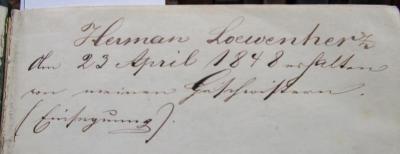 Herman Loewenherz
den 23 April 1848 erhalten
von meinen Geschwistern.
(Einsegnung).